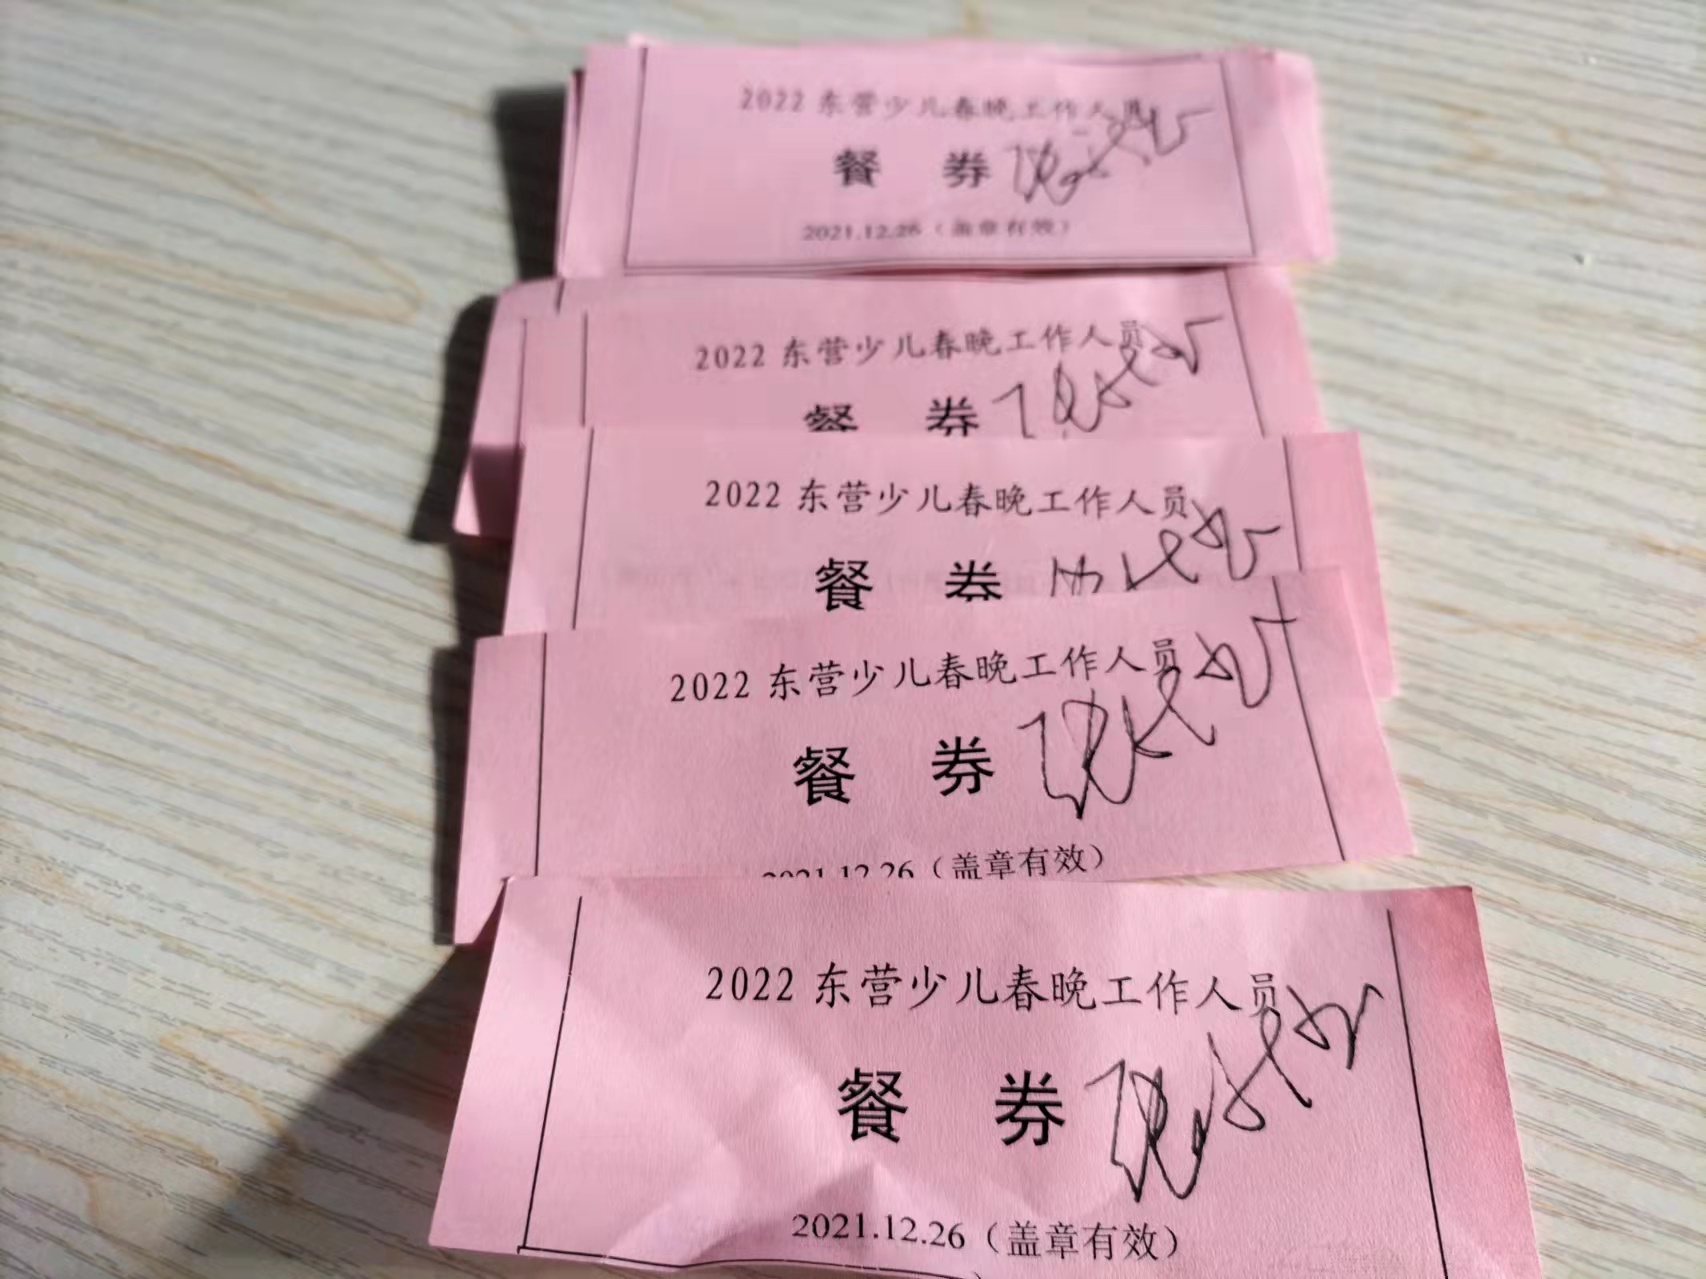 2022 东营少儿春晚工作人员
餐 券
2021.12.26（盖章有效）
2022 东营少儿春晚工作人员
餐 券
2022 东营少儿春晚工作人员
餐 券
2022 东营少儿春晚工作人员
餐 券
2021.12.26（盖章有效）
2022 东营少儿春晚工作人员
餐 券
2021.12.26（盖章有效）